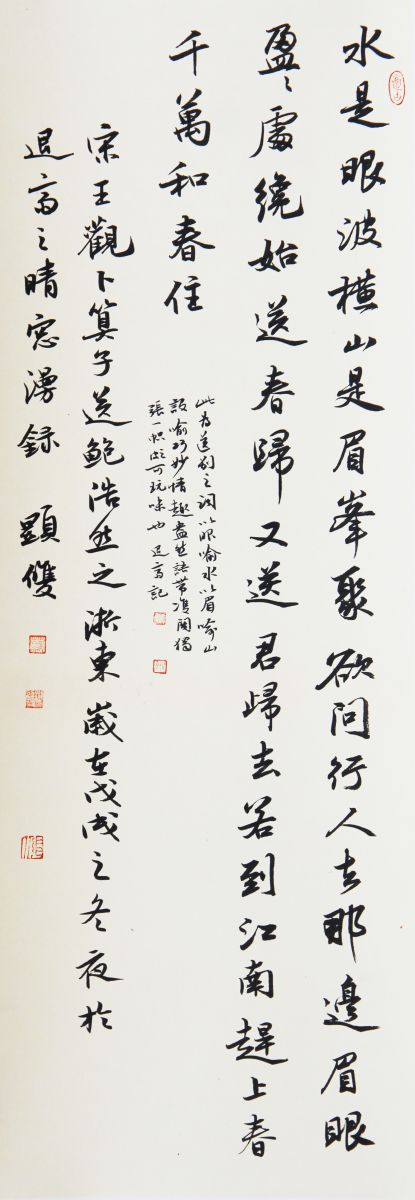 水是眼波橫山是眉峯聚欲問行人去那邊眉眼
盈〻處纔始送春歸又送君歸去若到江南趕上春
千萬和春住
此為送別之詞以眼喻水以眉喻山
設喻巧妙情趣盎然語帶雙關獨
張一幟頗可玩味也 退齋記
宋王觀卜算子送鮑浩然之浙東歲在戊戌之冬夜於
退齋之晴窓 録 顯雙